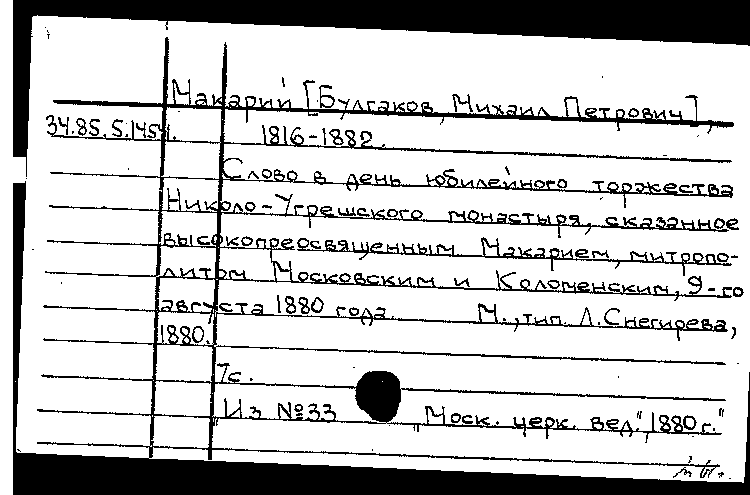 Макарий [Булгаков, Михаил Петрович],
34.85.5.1454. 1816-1882.
Слово в день юбилейного торжества
Николо-Угрешского монастыря, сказанное
высокопреосвященным Макарием, митропо-
литом Московским и Коломенским, 9-го
августа 1880 года. М., тип. Л.Снегирева,
1880.
7с.
"Из №33 "Моск. церк. вед.", 1880г."